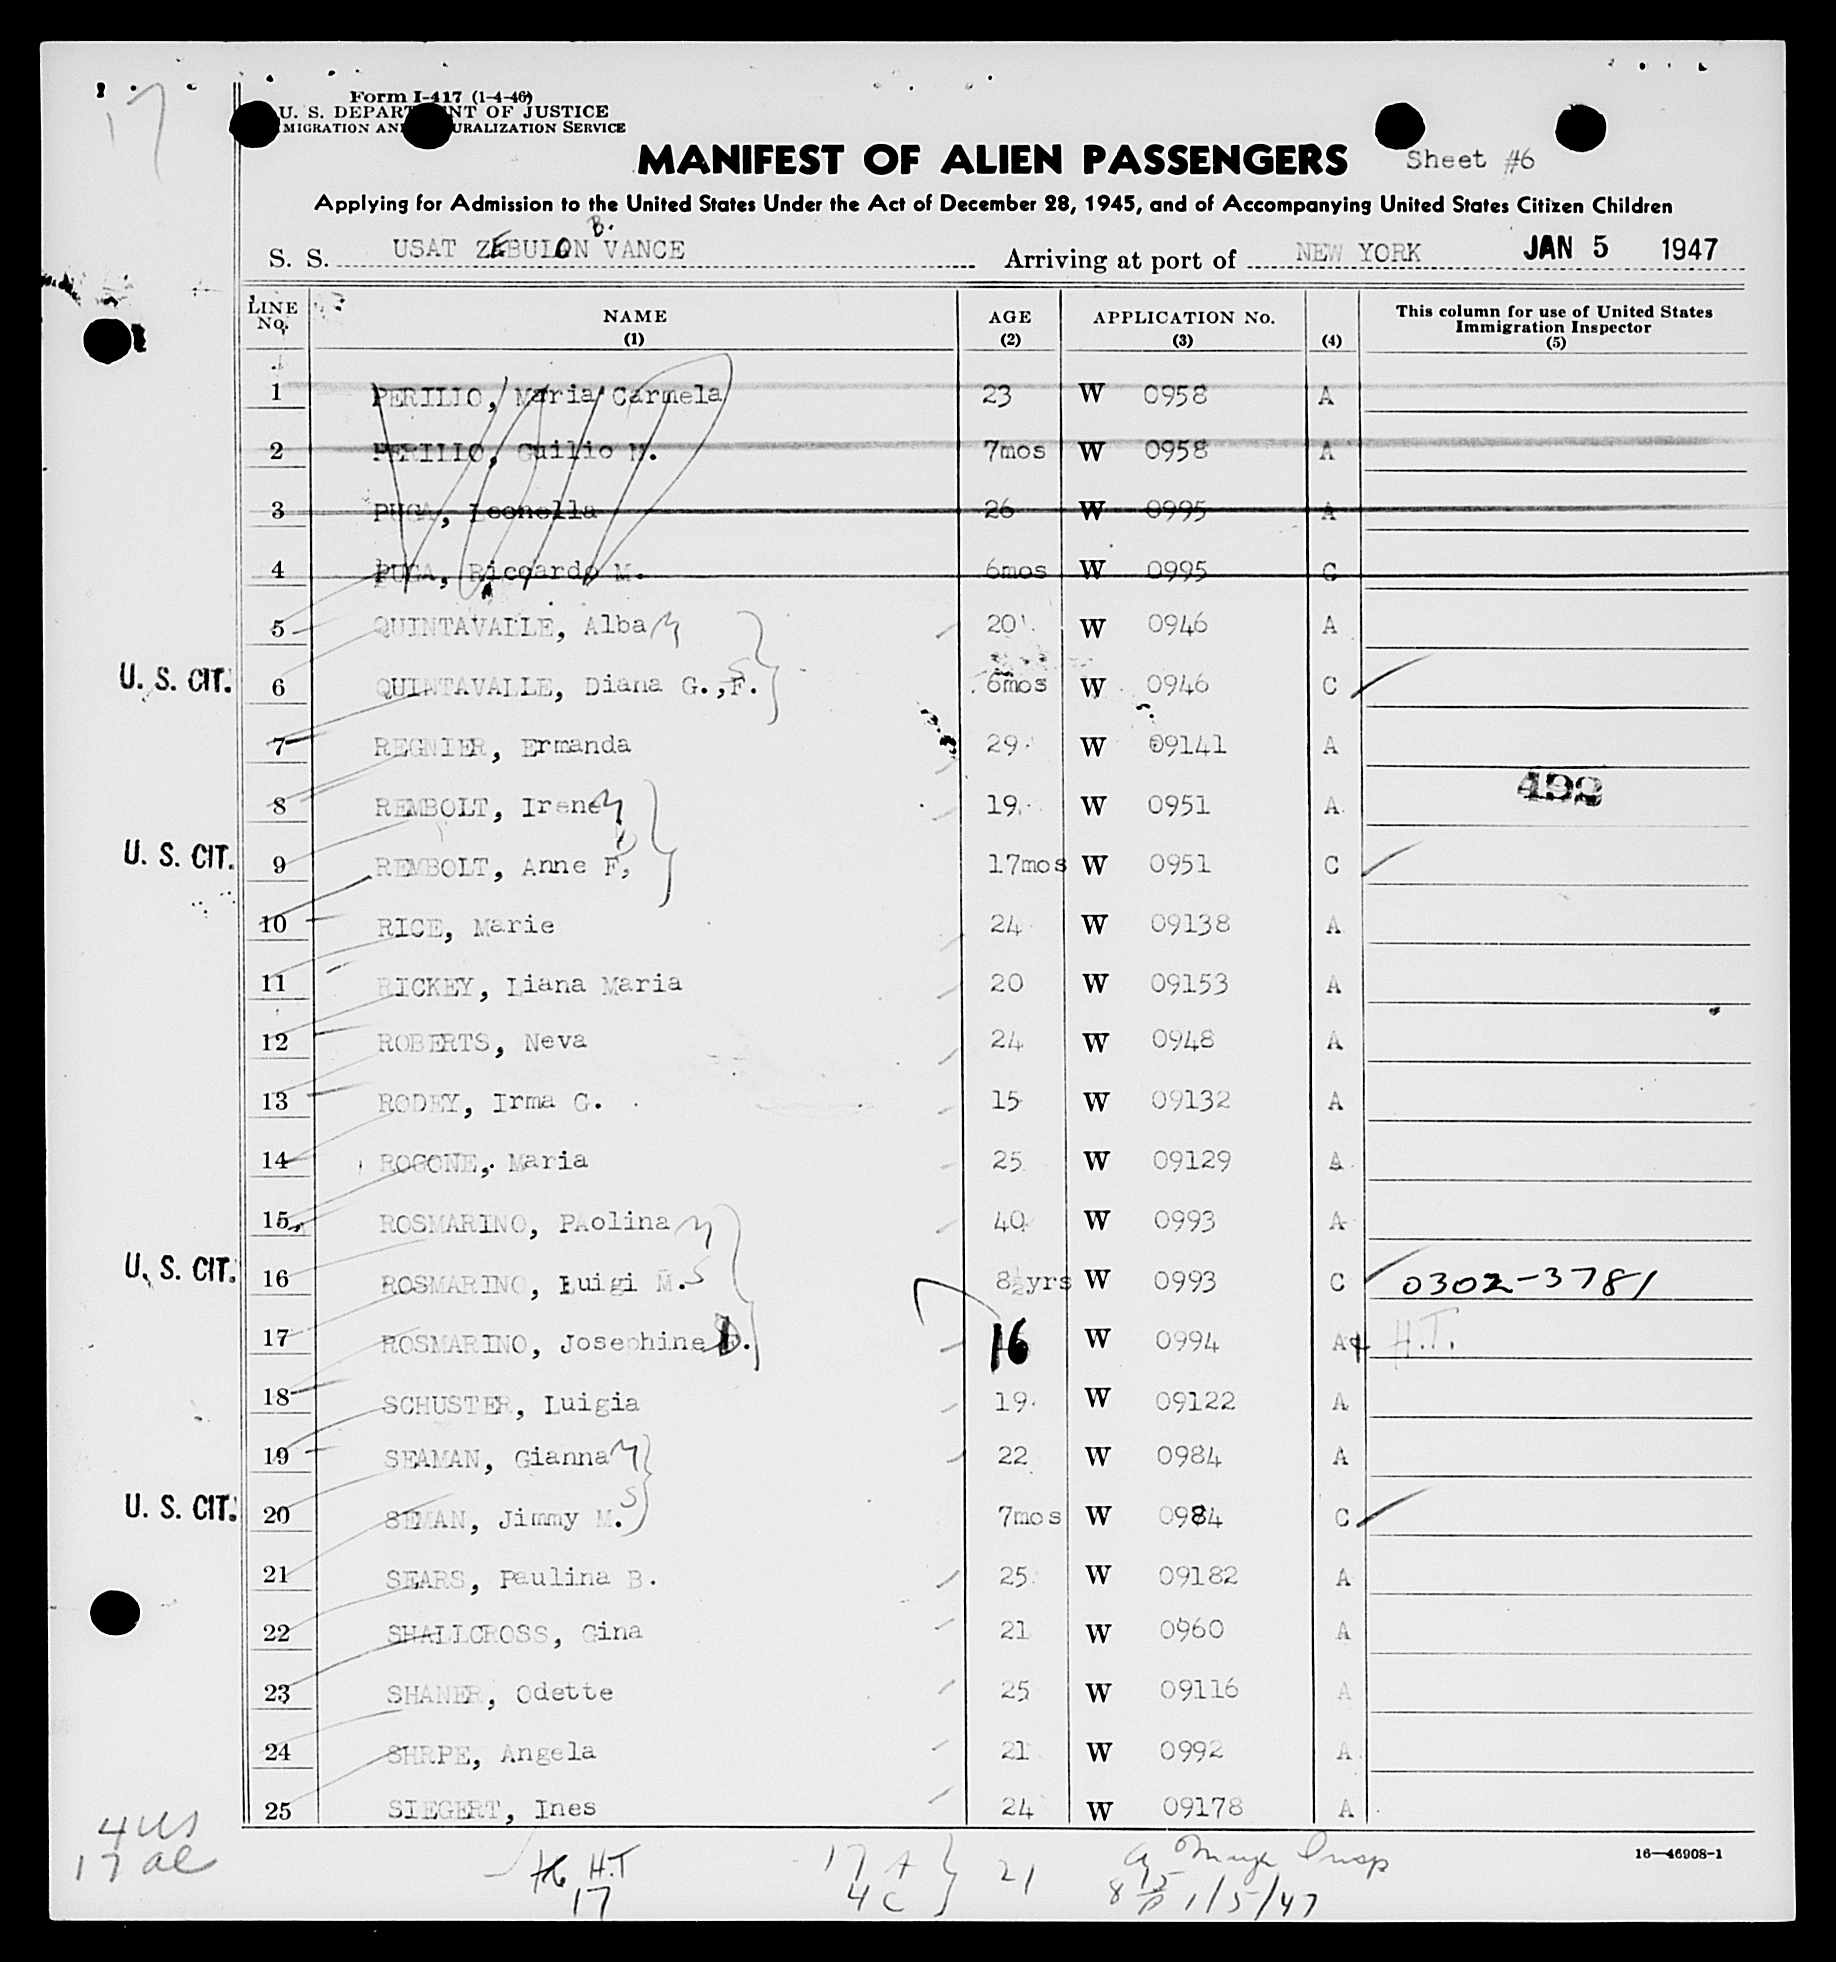 17
Form I-417 (1-4-46)
U. S. DEPARTMENT OF JUSTICE
IMMIGRATION AND NATURALIZATION SERVICE
MANIFEST OF ALIEN PASSENGERS Sheet #6
Applying for Admission to the United States Under the Act of December 28, 1945, and of Accompanying United States Citizen Children
S. S. USAT ZEBULON B. VANCE Arriving at port of NEW YORK JAN 5 1947
LINE No. NAME (1) AGE (2) APPLICATION No. (3) (4) This column for use of United States Immigration Inspector (5)
1 PERILIO, Maria Carmela 23 W 0958 A
2 PERILIO, Guilio M. 7mos W 0958 A
3 PUGA, Leonella 26 W 0995 A
4 PUGA, Riccardo M. 6mos W 0995 C
5 QUINTAVALLE, Alba M 20 W 0946 A
U. S. CIT. 6 QUINTAVALLE, Diana G.,F. S 6mos W 0946 C
7 REGNIER, Ermanda 29 W 09141 A
499
8 REMBOLT, Irene M 19 W 0951 A
U. S. CIT. 9 REMBOLT, Anne F, D 17mos W 0951 C
10 RICE, Marie 24 W 09138 A
11 RICKEY, Liana Maria 20 W 09153 A
12 ROBERTS, Neva 24 W 0948 A
13 RODEY, Irma G. 15 W 09132 A
14 ROGONE, Maria 25 W 09129 A
15 ROSMARINO, PAolina M 40 W 0993 A
U. S. CIT. 16 ROSMARINO, Luigi M. S 8½yrs W 0993 C 0302-3781
17 ROSMARINO, Josephine D. 16 W 0994 A H.T.
18 SCHUSTER, Luigia 19 W 09122 A
19 SEAMAN, Gianna M 22 W 0984 A
U. S. CIT. 20 SEMAN, Jimmy M. S 7mos W 0984 C
21 SEARS, Paulina B. 25 W 09182 A
22 SHALLCROSS, Gina 21 W 0960 A
23 SHANER, Odette 25 W 09116 A
24 SHRPE, Angela 21 W 0992 A
25 SIEGERT, Ines 24 W 09178 A
4 US
17 al
H.T
17
17 A
4 C } 21
Insp
1/5/47
16—46908-1